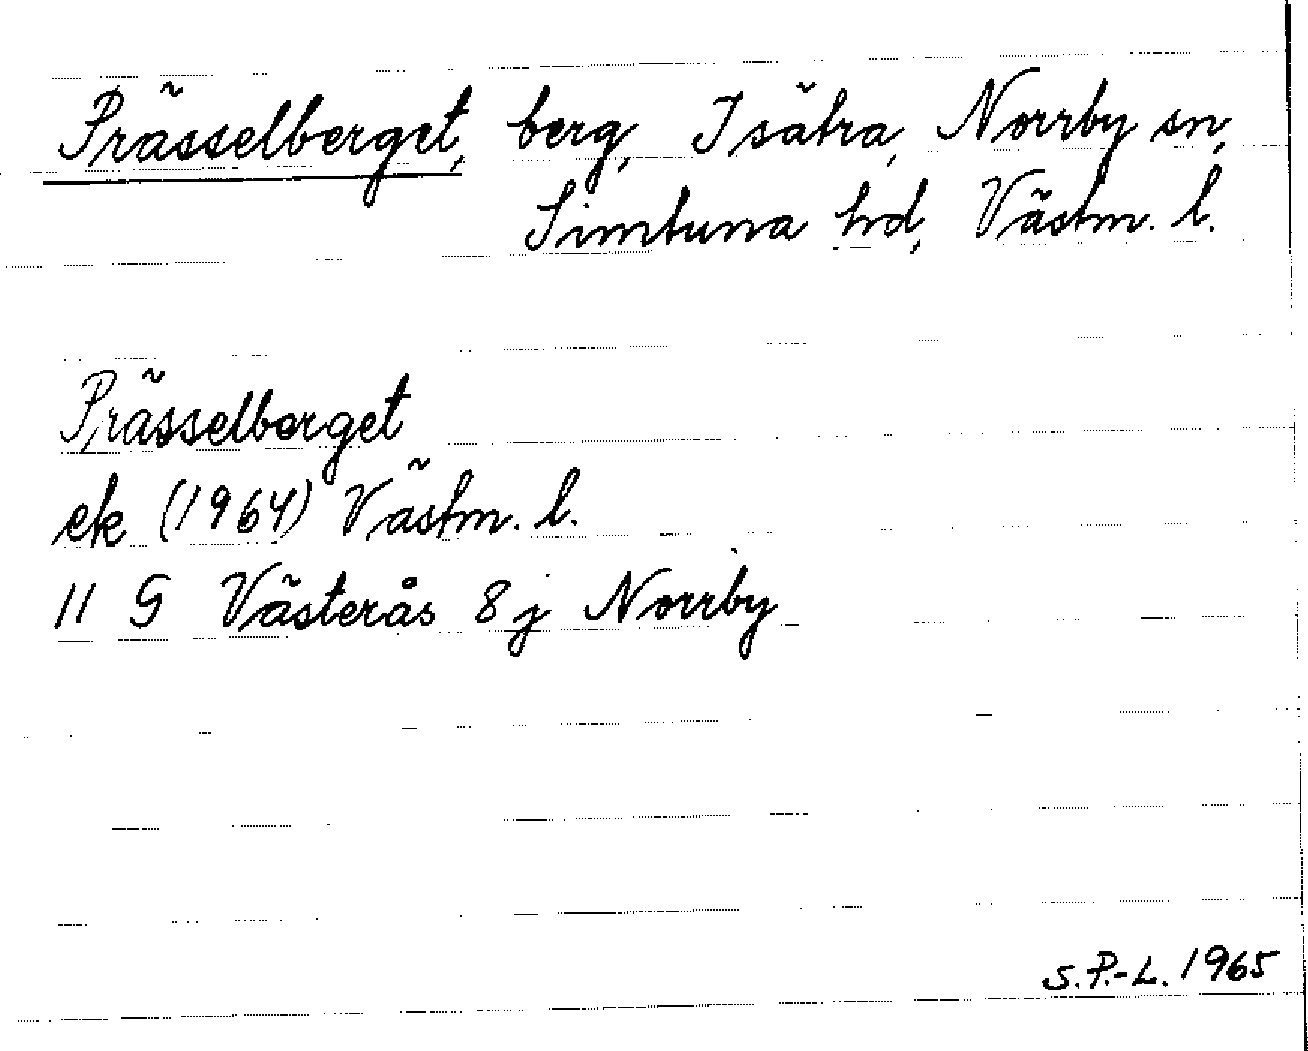 Prässelberget, berg, Isätra, Norrby sn,
Simtuna hd, Västm. l.
Prässelberget
ek (1964) Västm. l.
11 G Västerås 8 j Norrby
S.P.-L. 1965